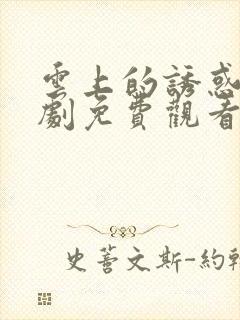 雲上的誘惑
劇免費觀看
史蒼文斯-約翰